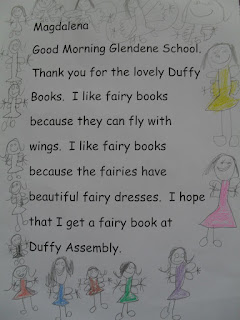 Magdalena
Good Morning Glendene School.
Thank you for the lovely Duffy
Books.  I like fairy books
because they can fly with
wings.  I like fairy books
because the fairies have
beautiful fairy dresses.  I hope
that I get a fairy book at
Duffy Assembly.